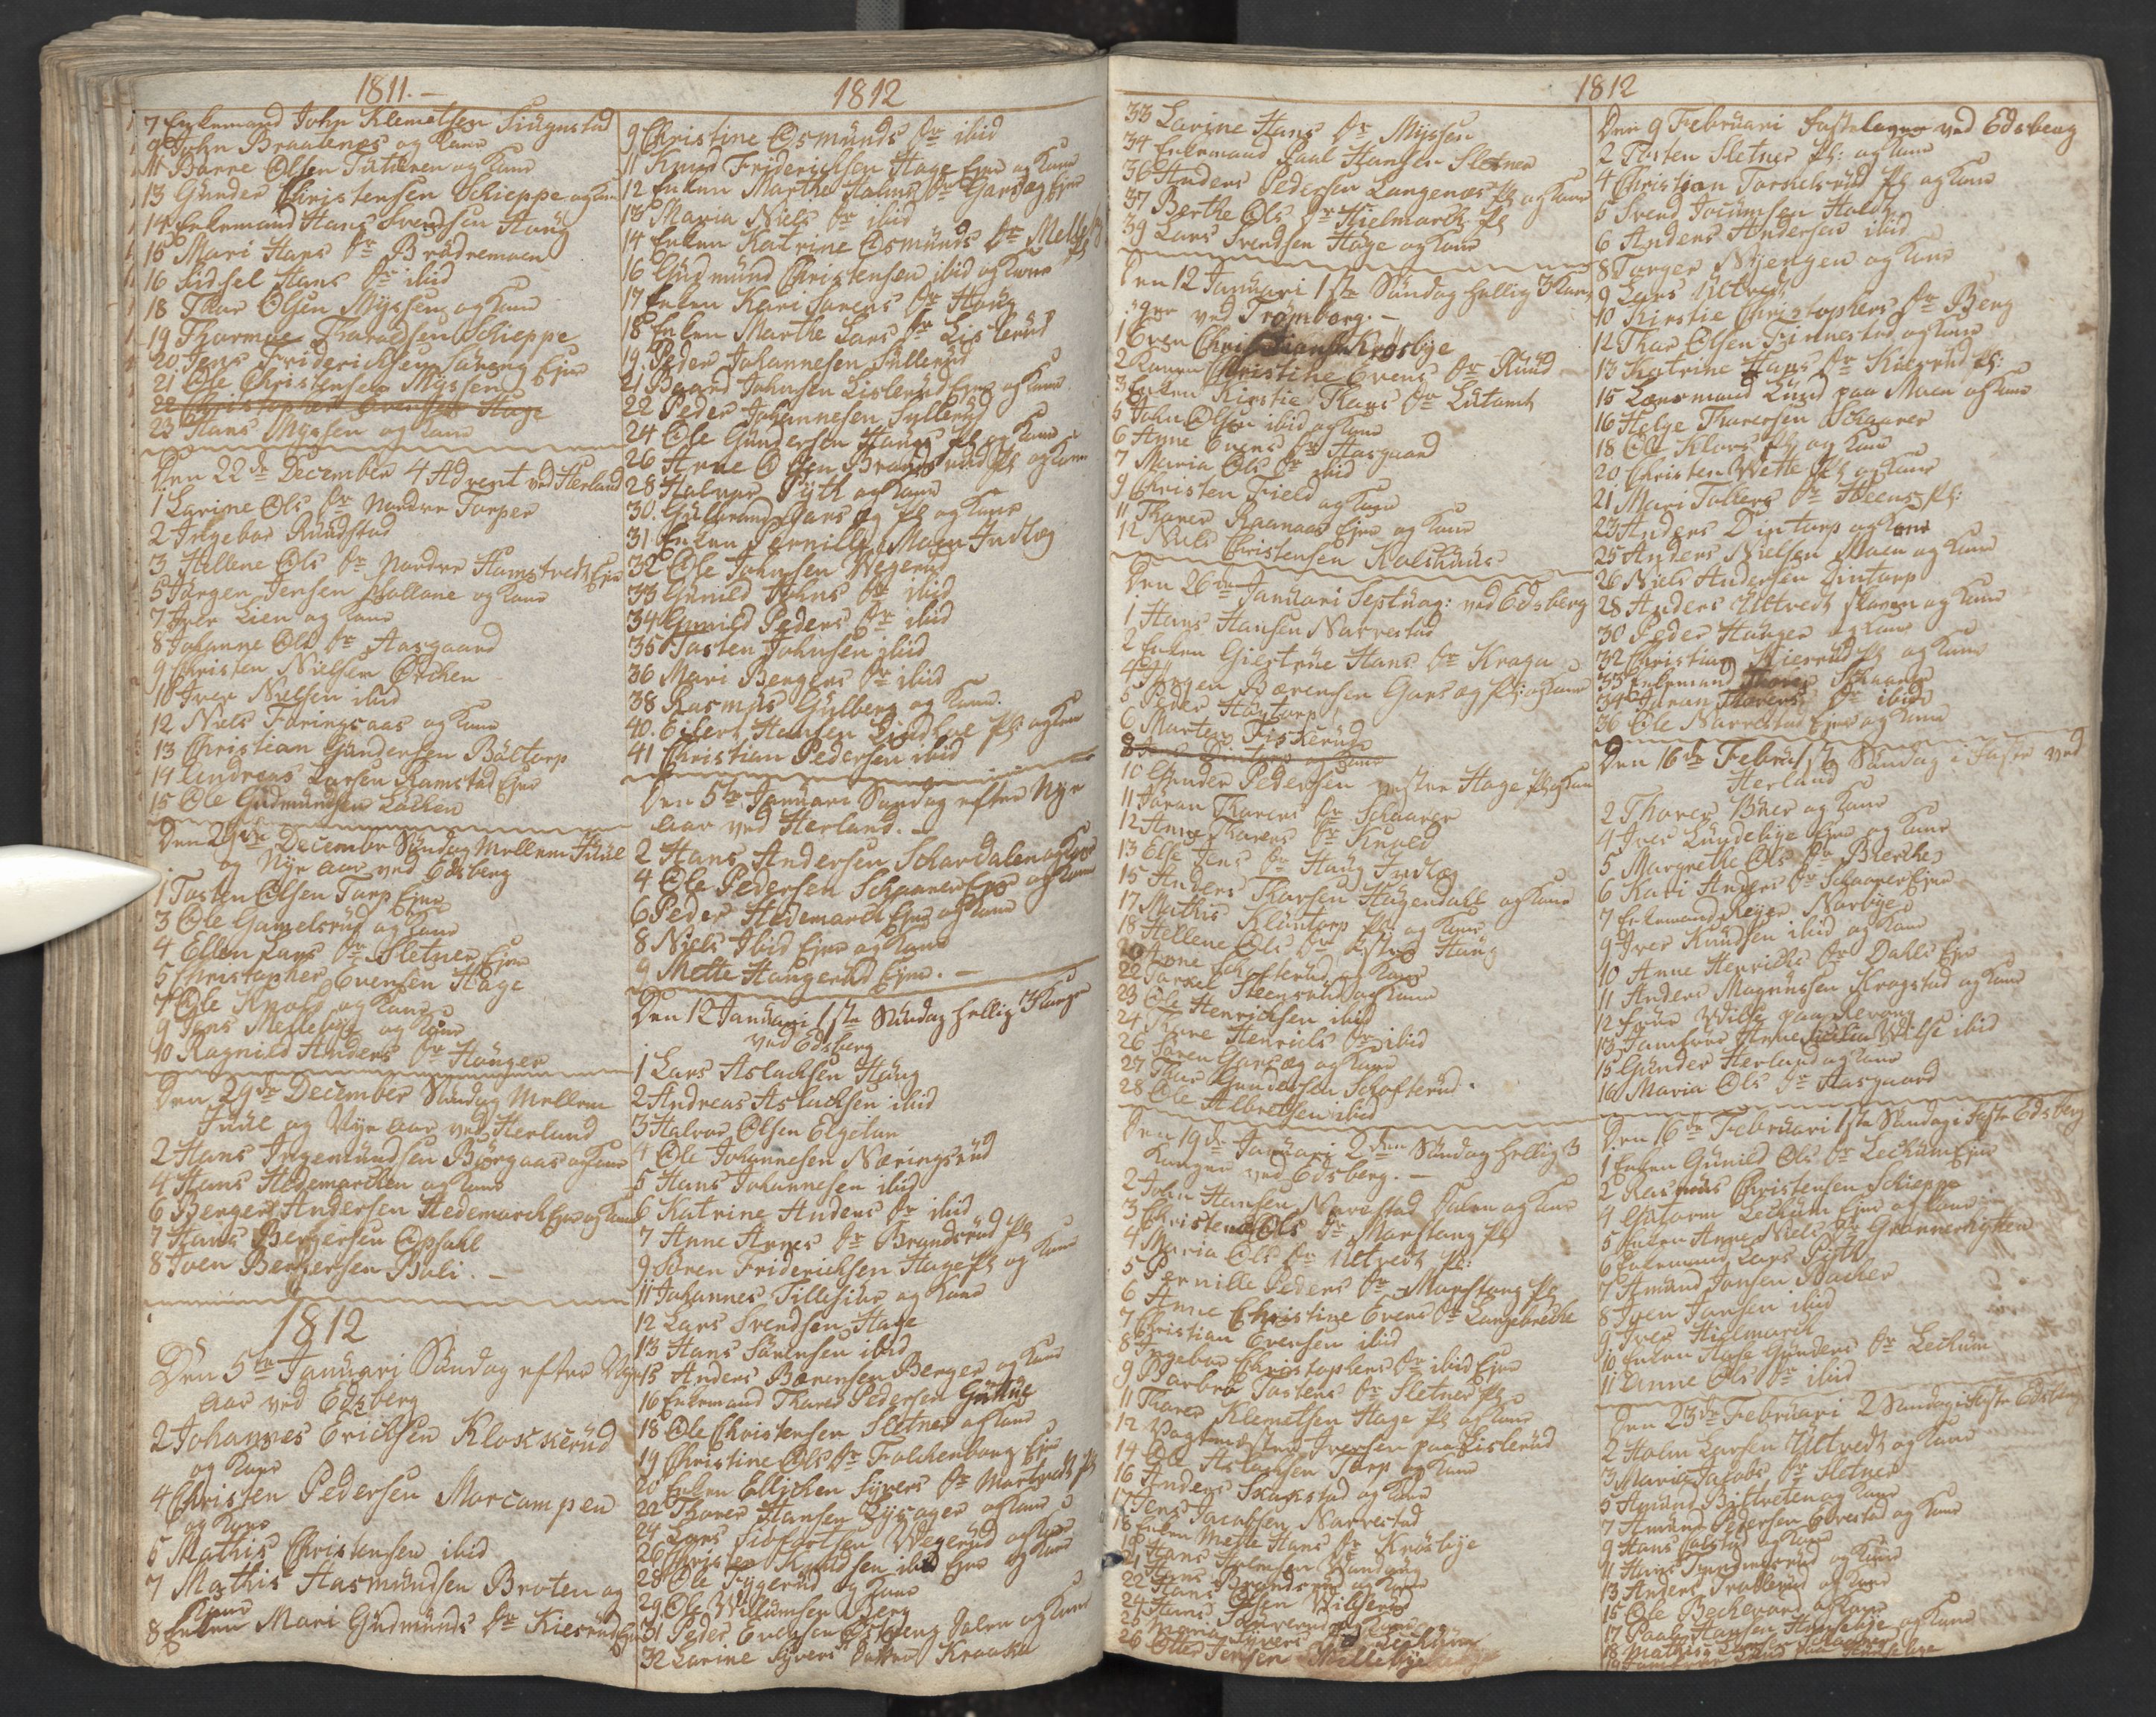 1811.-
7 Enkemand John Klemetsen Siugnstad
9 John Braatenes og Kone
11 Barre Olsen Tutteren og Kone
13 Gunder Christensen Schieppe og Kone
14 Enkemand Hans Svendsen Haug
15 Mari Hans Dr Brødremoen
16 Sidsel Hans Dr ibid
18 Thor Olsen Myssen og Kone
19 Thormoe Tharalsen Schieppe
20 Jens Friderichsen Ejer
21 Ole Christensen Myssen
22 Christopher Evensen Hage
23 Hans Myssen og Kone
Den 22de December 4 Advent ved Herland
1 Larine Ols Dr Nordre Torper
2 Ingebor Rundstad
3 Hellene Ols Dr Nordre Hamstvedt Ejer
5 Jørgen Jensen Hollane og Kone
7 Iver Lien og Kone
8 Johanne Ols Dr Aasgaard
9 Christen Nielsen Ørchen
10 Iver Nielsen ibid
12 Niels Foringsaas og Kone
13 Christian Gundersen Bøltorp
14 Andreas Larsen Ramstad Ejer
15 Ole Gudmundsen Løchen
Den 29de December Søndag Mellem Juul
og Nye aar ved Edsberg
1 Tosten Olsen Torp Ejer
3 Ole Gamelsrud og Kone
4 Ellen Lars Dr Sletner Ejer
5 Christopher Evensen Hage
7 Ole Knold og Kone
9 Jens Mellebye og Kone
10 Ragnild Anders Dr Haŭger
Den 29de December Søndag Mellem
Juul og Nye aar ved Herland
2 Hans Ingemundsen Biørgaas og Kone
4 Hans Hedemarchen og Kone
6 Berger Andersen Hedemarch Ejer og Kone
7 Hans Bergersen Opsahl
8 Iven Bergersen Buli.-
1812
Den 5te Januari Søndag efter Nye
aar ved Edsberg
2 Johannes Erichsen Klokkerud
og Kone
4 Christen Pedersen Morcampen
og Kone
5 Mathis Christensen ibid
7 Mathis Aasmundsen Braten og
Kone
8 Enken Mari Gudmunds Dr Kierud Ejer
1812
9 Christine Osmunds Dr ibid
11 Knud Friderichsen Hage Ejer og Kone
12 Enken Marthe Holms Dr Garseg Ejer
13 Maria Niels Dr ibid
14 Enken Katrine Osmunds Dr Melleb
16 Gudmund Christensen ibid og Kone Pl
17 Enken Kari Sørens Dr Haug
18 Enken Marthe Lars Dr Lislerud
19 Peder Johannesen Sullerud
21 Baard Johnsen Lislerud Ejer og Kone
22 Peder Johannesen Sullerud
24 Ole Gundersen Hauger Pl og Kone
26 Arne Olsen Brandsrud Pl og Kone
28 Halvor Pyth og Kone
30 Gulbrand Garseg Pl og Kone
31 Enken Pernille Moen Indlæg
32 Ole Johnsen Wegerud
33 Gunild Johns Dr ibid
34 Gunild Peders Dr ibid
35 Tosten Johnsen ibid
36 Mari Bergers Dr ibid
38 Rasmus Gulberg og Kone
40. Eilert Hansen Lindhol Pl og Kone
41 Christian Pedersen ibid
Den 5te Januari Søndag efter Nye
aar ved Herland.-
2 Hans Andersen Schardalen og Kone
4 Ole Pedersen Schaarer Ejer og Kone
6 Peder Hedemarch Ejer og Kone
8 Niels ibid Ejer og Kone
9 Mette Haugerud Ejer.-
Den 12 Januari 1ste Søndag hellig 3 Konger
ved Edsberg
1 Lars Aslachsen Haug
2 Andreas Aslachsen ibid
3 Halvor Olsen Elgetun
4 Ole Johannesen Næringsrud
5 Hans Johannesen ibid
6 Katrine Anders Dr ibid
7 Anne Arnes Dr Brandsrud Pl
9 Søren Friderichsen Hage Pl og Kone
11 Johannes Tillesius og Kone
12 Lars Svendsen Hage
13 Hans Sørensen ibid
15 Anders Børensen Berger og Kone
16 Enkemand Thorer Pedersen
18 Ole Christensen Sletner og Kone
19 Christine Ols Dr Falchenborg Ejer
20 Enken Ellichen Syvers Dr Martvedt Pl
22 Thorer Hansen Lysager og Kone
24 Lars Siofortsen Wegerud og Kone
26 Christen Knudsen ibid Ejer og Kone
28 Ole Tyggerud og Kone
29 Ole Willumsen Berg
31 Peder Evensen Østereng og Kone
32 Larine Syvers Datter Kraaka
1812
33 Lavine Hans Dr Myssen
34 Enkemand Paal Hansen Sletner
36 Anders Pedersen Langenæs Pl og Kone
37 Berthe Ols Dr Hielmarck Pl
39 Lars Svendsen Hage og Kone
Den 12 Januari 1ste Søndag hellig 3 Kon
ger ved Trømborg.-
1 Even Krosbye
2 Konen Christine Evens Dr Ruud
3 Enken Kirstie Thors Dr Lutomt
5 John Olsen ibid og Kone
6 Anne Evens Dr Aasgaard
7 Maria Ols Dr ibid
9 Christen Field og Kone
11 Thorer Raanaas Ejer og Kone
12 Niels Christensen Kolshuus
Den 26de Januari Septuag: ved Edsberg
1 Hans Hansen Narvestad
2 Enken Giertrue Hans Dr Kragu
4 Jørgen Børensen Garseg Pl: og Kone
5 Peder Huutorp
6 Morten Fiskerud
10 Gunder Pedersen vestre Hage Pl og Kone
11 Joran Thorers Dr Schaarer
12 Anne Thorers Dr Knold
13 Else Jens Dr Haug Indlæg
15 Anders Thorsen Hugendahl og Kone
17 Mathis Kluntorp Pl og Kone
18 Hellene Ols Dr østre Haug
20 Arne Schofterud og Kone
22 Torkel Steensrud og Kone
23 Ole Henrichsen ibid
24 Karen Henrichs Dr ibid
26 Søren Garseg og Kone
27 Thor Gundersen Schofterud.
28 Ole Albretsen ibid
Den 19de Januari 2den Søndag hellig 3
Konger ved Edsberg.-
2 John Hansen Narvestad og Kone
3 Christene Ols Dr Morstang Pl
4 Maria Ols Dr Ultvedt Pl:
5 Pernille Peders Dr Morstang Pl
6 Anne Christine Evens Dr Langebrecke
7 Christian Evensen ibid
8 Ingebor Christophers Dr ibid Ejer
9 Barbro Tostens Dr Sletner Pl
11 Thorer Klemetsen Hage Pl og Kone
12 Vagtmester Iversen paa Lislerud
14 Ole Aslachsen Torp og Kone
16 Anders Skakstad og Kone
17 Jens Jacobsen Narvestad
18 Enken Mette Hans Dr Krosbye
19 Hans Holmsen
21 Hans Brandsrud og Kone
22 Hans Olsen Wilgerud
24 Hans og Kone
25 Maria Syvers Dr Lechum
26 Otter Jensen Mellebye
Den 9 Februari Fastelagen ved Edsberg
2 Tosten Sletner Pl: og Kone
4 Christian Tornelsrud Pl og Kone
5 Svend Joeumsen Holdt
6 Anders Andersen ibid
8 Torger Nyengen og Kone
9 Lars Ultvedt
10 Kirstie Christophers Dr Berg
12 Thor Olsen Finnestad og Kone
13 Katrine Hans Dr Kierrud Pl:
15 Lænsmand Lund paa Moen og Kone
16 Helge Thorersen Schaarer
18 Ole Klores Pl og Kone
20 Christen Wette Pl og Kone
21 Mari Tolvers Dr Steens Pl:
23 Anders Dintorp og Kone
25 Anders Nielsen Moen og Kone
26 Niels Andersen Dintorp
28 Anders Ultvedt Skoven og Kone
30 Peder Hauger og Kone
32 Christian Kierrud Pl og Kone
33 Enkemand Thorer Schaarer
34 Joran Thorers Dr ibid
36 Ole Narvestad Ejer og Kone
Den 16de Febru: 1ste Søndag i Faste ved
Herland
2 Thorer Buer og Kone
4 Iver Lundebye Ejer og Kone
5 Margrethe Ols Dr Bierche
6 Kari Anders Dr Schaarer Ejer
7 Enkemand Reyer Norbye
9 Iver Knudsen ibid og Kone
10 Anne Henrichs Dr Dahls Ejer
11 Anders Magnussen Krogstad og Kone
12 Frue Wilse paa Revoug
13 Jomfrue Anne Sicilia Wilse ibid
15 Gunder Herland og Kone
16 Maria Ols Dr Aasgaard
Den 16de Februari 1ste Søndag i Faste Edsberg
1 Enken Gunild Ols Dr Lechum Ejer
2 Rasmus Christensen Schieppe
4 Guttorm Lechum Ejer og Kone
5 Enken Anne Niels Dr Grønnerhytten
6 Enkemand Lars Pyth
7 Amund Jonsen Bacher
8 Iver Jonsen ibid
9 Iver Hielmarck
10 Enken Aase Gunders Dr Lechum
11 Anne Ols Dr ibid
Den 23de Februari 2 Søndag i Faste Edsberg
2 Holm Larsen Ultvedt og Kone
3 Maria Jacobs Dr Sletner
5 Amund Bittreten og Kone
7 Amund Pedersen Efvestad og Kone
9 Hans og Kone
11 Hans og Kone
13 Anders Trollerud og Kone
15 Ole Bechevard og Kone
17 Paal Hansen Harsebye og Kone
18 Mathis Larsen Schaarer